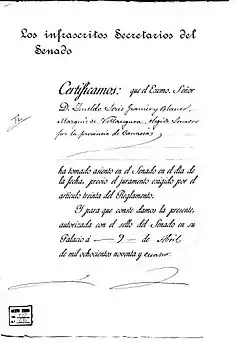 Los infrascritos Secretarios del
Senado
Certificamos: que el Excmo. Señor
D. Imeldo Seris Granier y Blanco,
Marqués de Villasegura, elegido Senador
por la provincia de Canarias
ha tomado asiento en el Senado en el día de
la fecha, previo el juramento exigido por el
artículo treinta del Reglamento.
Y para que conste damos la presente,
autorizada con el sello del Senado en su
Palacio á — 9 — de Abril —
de mil ochocientos noventa y cuatro